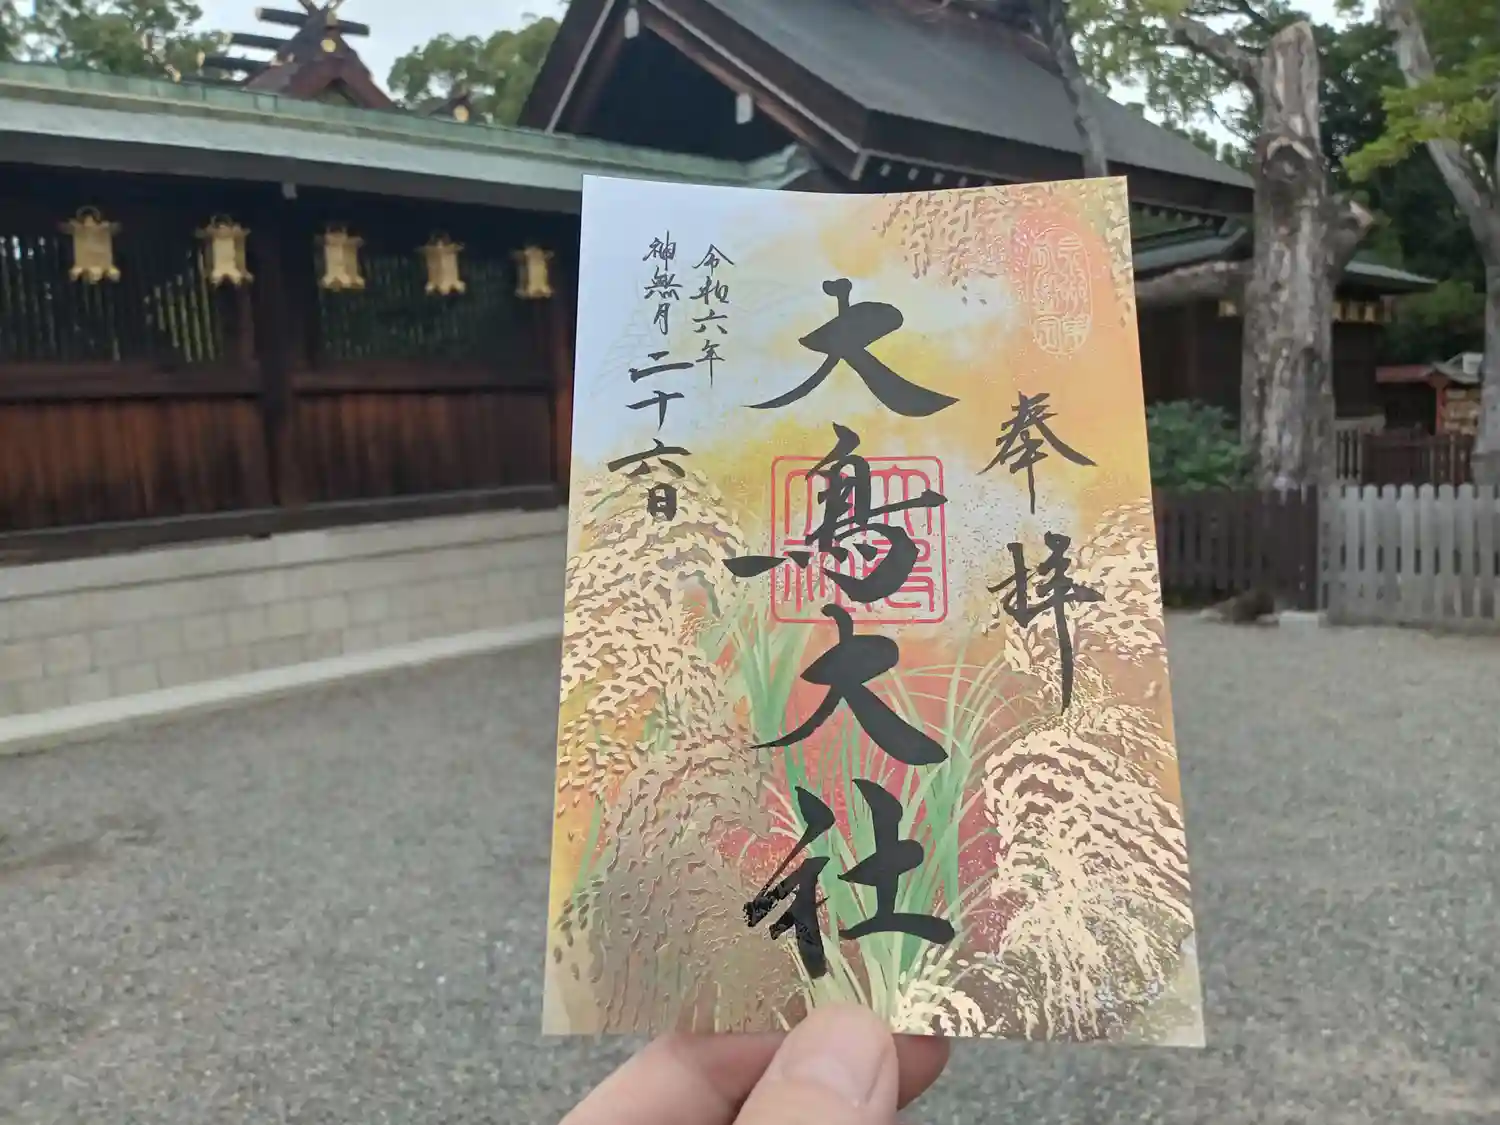 奉拝
大鳥大社
令和六年
神無月二十六日